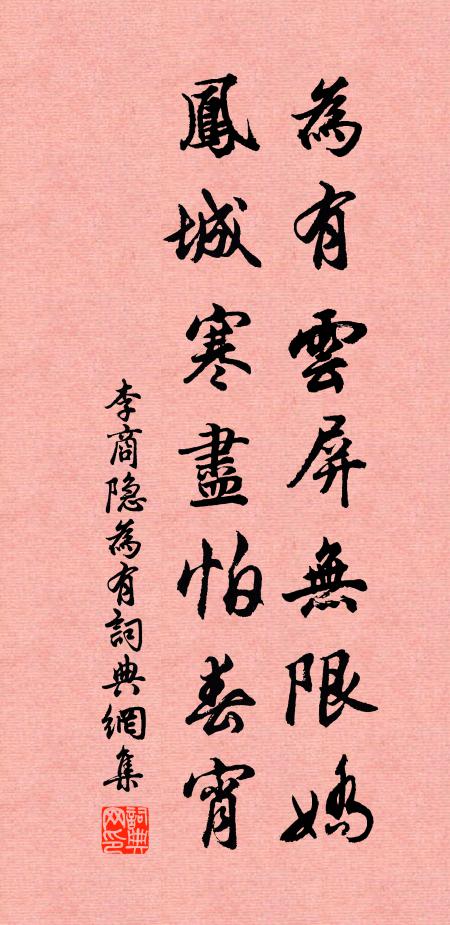 為有雲屏無限嬌
鳳城寒盡怕春宵
李商隐為有詞典網集
詞典网印